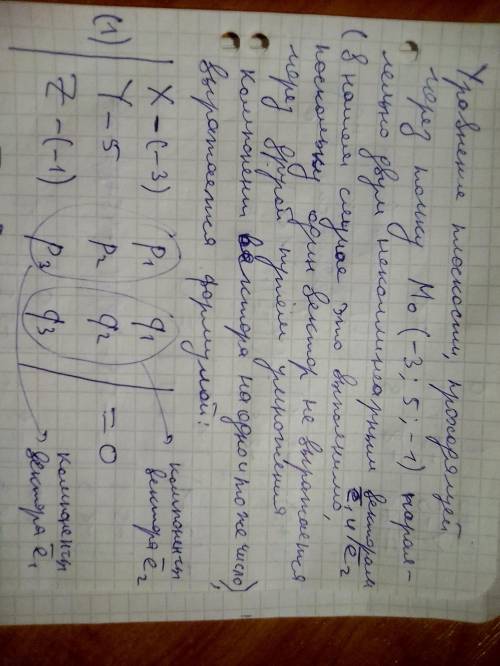 Уравнение плоскости, проходящей
через точку M₀ (-3; 5; -1) парал-
лельно двум неколлинеарным векторам
(в нашем случае это выполнимо, e̅₁ и e̅₂
поскольку один вектор не выражается
через другой путём умножения
компонент вектора на одно и то же число),
выражается формулой:
(1) | X - (-3) p₁ q₁ |
| Y - 5 p₂ q₂ | = 0
| Z - (-1) p₃ q₃ |
компоненты
вектора e̅₂
компоненты
вектора e̅₁